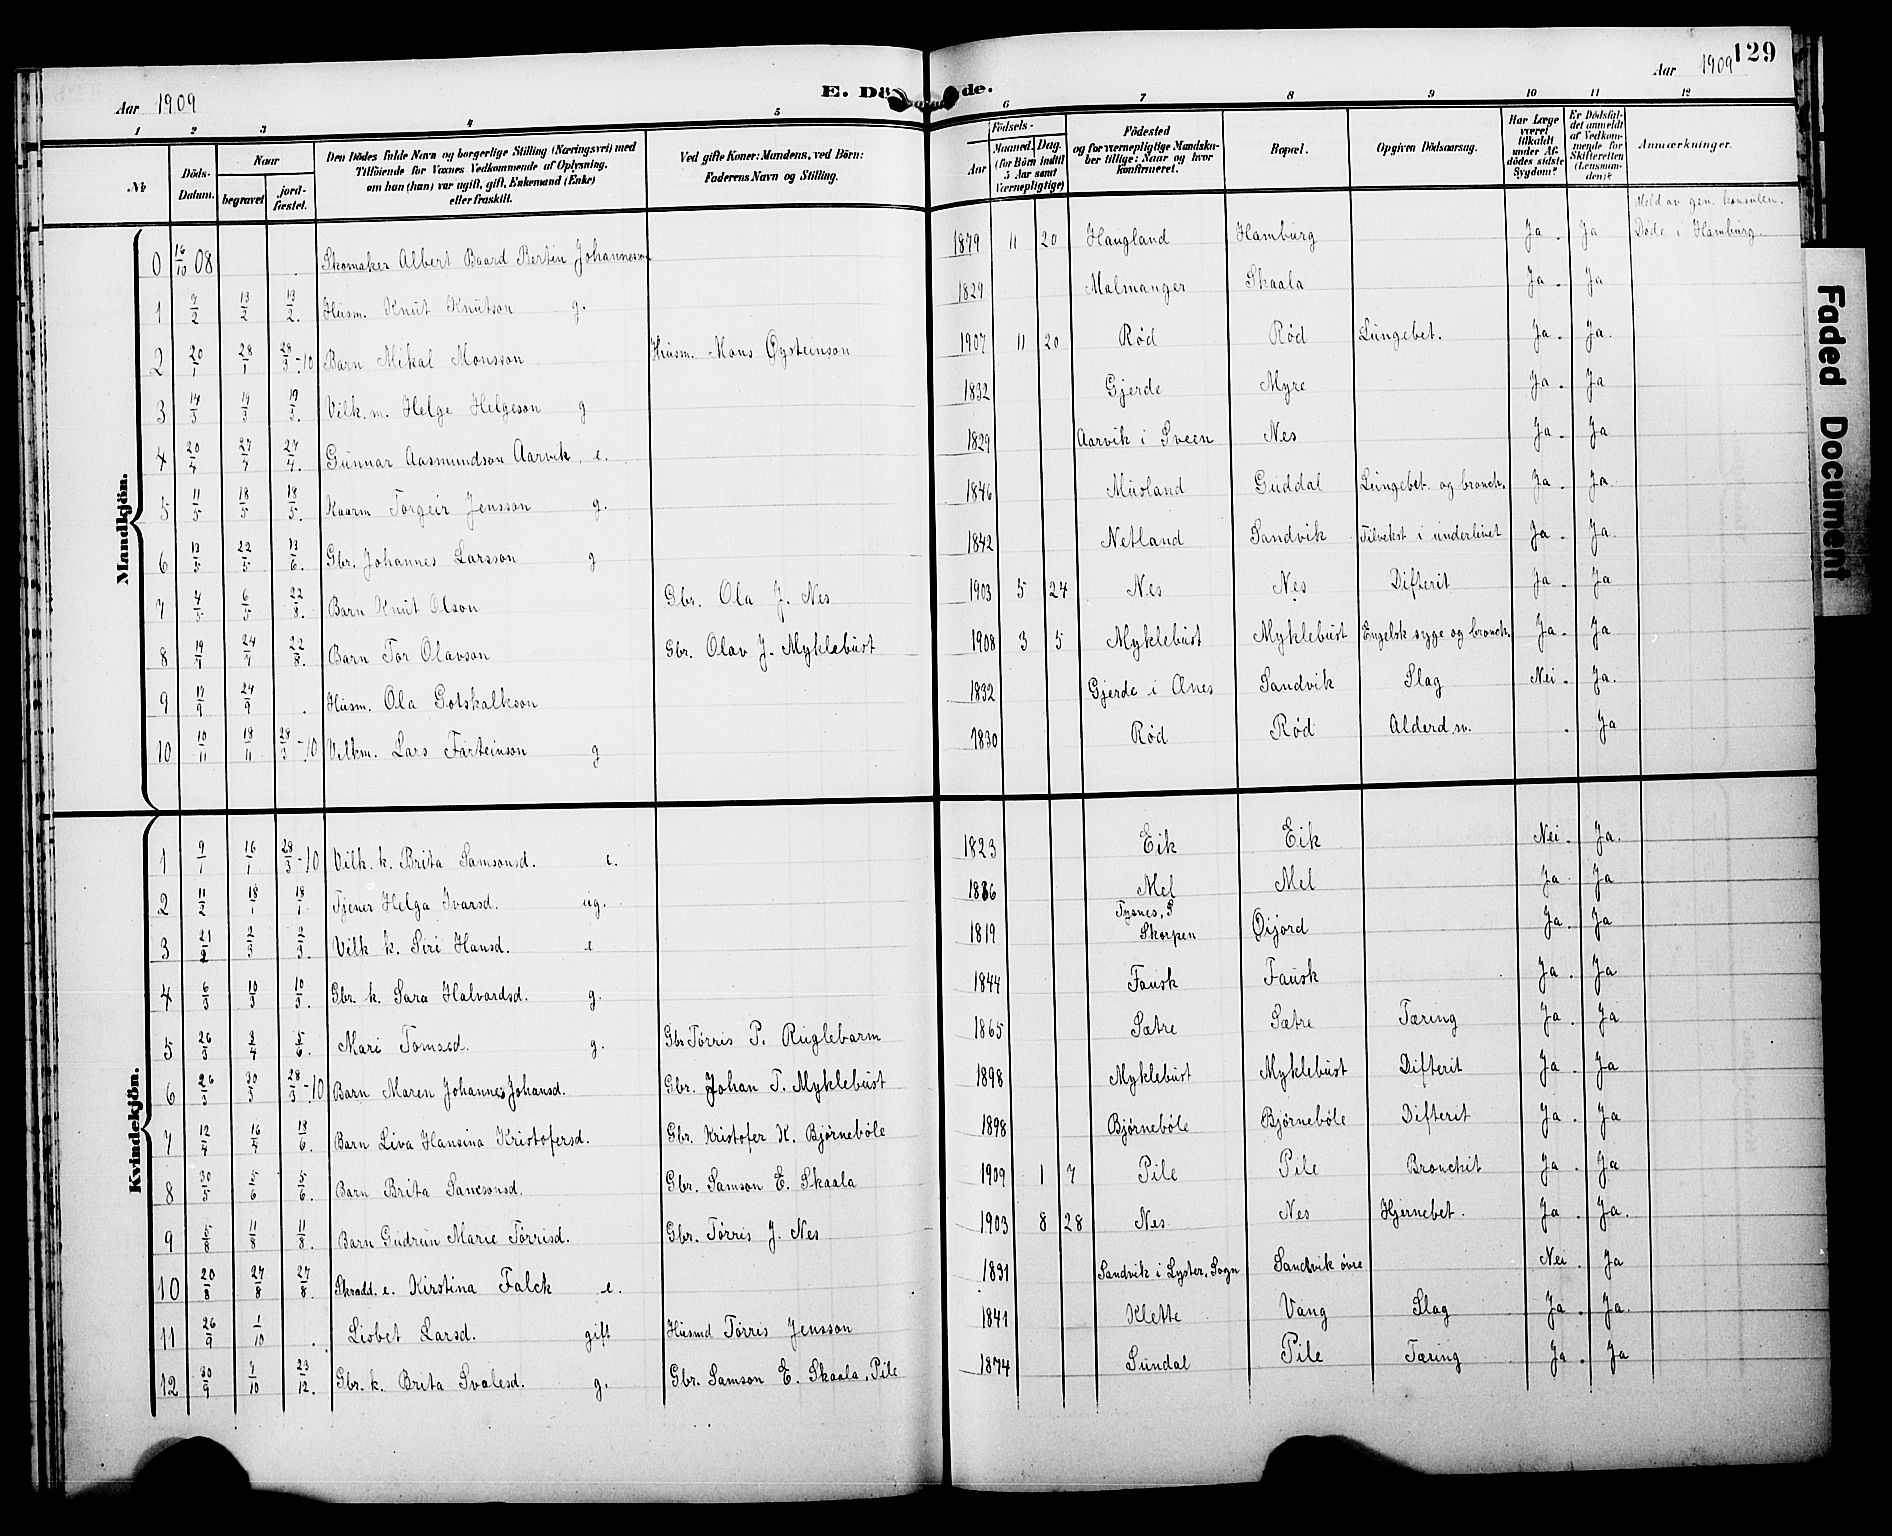 129
Aar 1909
Aar 1909
E. Dö de.
1 2 3 4 5 6 7 8 9 10 11 12
No
Döds-Datum.
Naar
begravet
jord-fæstet.
Den Dödes fulde Navn og borgerlige Stilling (Næringsvei) med
Tilföiende for Voxnes Vedkommende af Oplysning,
om han (hun) var ugift, gift, Enkemand (Enke)
eller fraskilt.
Ved gifte Koner: Mandens, ved Börn:
Faderens Navn og Stilling.
Födsels-
Aar
Maaned. Dag.
(for Börn indtil
5 Aar samt
Værnepligtige)
Födested
og for værnepligtige Mandskaber tillige: Naar og hvor
konfirmeret.
Bopæl.
Opgiven Dödsaarsag.
Har Læge
været
tilkaldt
under Afdödes sidste
Sygdom?
Er Dödsfaldet anmeldt
af Vedkommende for
Skifteretten
(Lensmanden)?
Anmærkninger.
Mandkjön.
0 16/10 08 Skomaker Albert Baard Bertin Johannesson 1879 11 20 Haugland Hamburg Ja. Ja Meld av gen. konsulen. Døde i Hamburg.
1 9/2 13/2 13/2. Husm. Knut Knutson g. 1829 Malmanger Skaala Ja. Ja
2 20/1 28/1 28/3-10 Barn Mikal Monsson Husm. Mons Øysteinson 1907 11 20 Rød Rød Lungebet. Ja. Ja.
3 14/3 19/3 19/3. Vilk.m. Helge Helgeson g 1832 Gjerde Myre Ja. Ja
4 20/4 27/4 27/4. Gunnar Aasmundson Aarvik, e. 1829 Aarvik i Sveen Nes Ja. Ja
5 11/5 18/5 18/5. Kaarm Torgeir Jensson g. 1846 Musland Guddal Lungebet. og bronch. Ja. Ja
6 13/5 22/5 13/6. Gbr. Johannes Larsson g 1842 Netland Sandvik Tilvekst i underlivet Ja. Ja.
7 4/5 6/5 22/8. Barn Knut Olson Gbr. Ola J. Nes 1903 5 24 Nes Nes Difterit Ja. Ja
8 19/7 24/7 22/8. Barn Tor Olavson Gbr. Olav J. Myklebust 1908 3 5 Myklebust Myklebust Engelsk syge og bronch. Ja. Ja
9 17/9 24/9 . Husm. Ola Gotskalkson 1832 Gjerde i Ænes Sandvik Slag Nei. Ja.
10 10/11 18/11 28/3-10 Vilkm. Lars Tarteinson g 1830 Rød Rød Alderd.sv. . Ja
Kvindekjön.
1 9/1 16/1 28/3-10 Vilk. k. Brita Samsonsd. e. 1823 Eik Eik Nei. Ja.
2 11/2 18/1 18/1. Tjener Helga Ivarsd. ug. 1886 Mel Mel Ja. Ja
3 21/2 2/3 2/3. Vilk k. Siri Hansd. e 1819 Tysnes, S Skorpen Øijord Ja. Ja
4 6/3 10/3 10/3. Gbr. k. Sara Halvardsd. g. 1844 Fausk Fausk Ja. Ja
5 26/3 2/4 5/6. Mari Tomasd. g. Gbr Tørris P. Ruglebarm 1865 Sætre Sætre Tæring Ja. Ja
6 26/3 30/3 28/3-10 Barn Maren Johannes Johansd. Gbr. Johan T. Myklebust 1898 Myklebust Myklebust Difterit Ja. Ja
7 12/4 16/4 13/6. Barn Liva Hansina Kristofersd. Gbr. Kristofer K. Bjørnebøle 1898 Bjørnebøle Bjørnebøle Difterit Ja. Ja
8 30/5 5/6 5/6. Barn Brita Samsonsd. Gbr. Samson E. Skaala 1909 1 7 Pile Pile Bronchit Ja. Ja
9 5/8 11/8 11/8. Barn Gudrun Marie Tørrisd. Gbr. Tørris J. Nes 1903 8 28 Nes Nes Hjernebet. Ja. Ja.
10 20/8 27/8 27/8. Skradd. e. Kirstina Falck e. 1831 Sandvik i Lyster, Sogn Sandvik øvre Nei. Ja
11 26/9 1/10 . Lisbet Larsd. gift Husmd Tørris Jensson 1841 Klette Vang Slag Ja. Ja.
12 30/9 7/10 23/12. Gbr. k. Brita Svalesd. g. Gbr. Samson E. Skaala, Pile 1874 Sundal Pile Tæring Ja. Ja
Faded Document